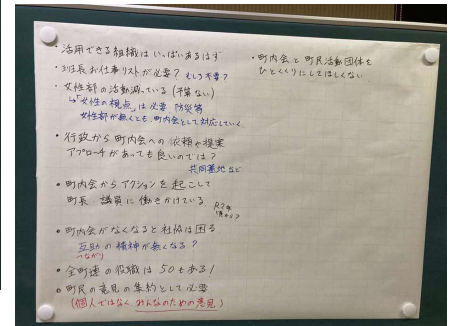 ・活用できる組織はいっぱいあるはず
・班長お仕事リストが必要? もしや不要?
・女性部の活動減っている(予算ない)
↳「女性の視点」は必要 防災等
女性部が無くとも、町内会として対応していく
・行政から町内会への依頼や提案
アプローチがあっても良いのでは?
共同墓地など
・町内会からアクションを起こして
町長・議員に働きかけている
・町内会がなくなると社協は困る
互助の精神が無くなる?
つながり
・全町連の役職は50もある!
・町民の意見の集約として必要
(個人ではなくみんなのための意見)
・町内会と町民活動団体を
ひとくくりにしてほしくない